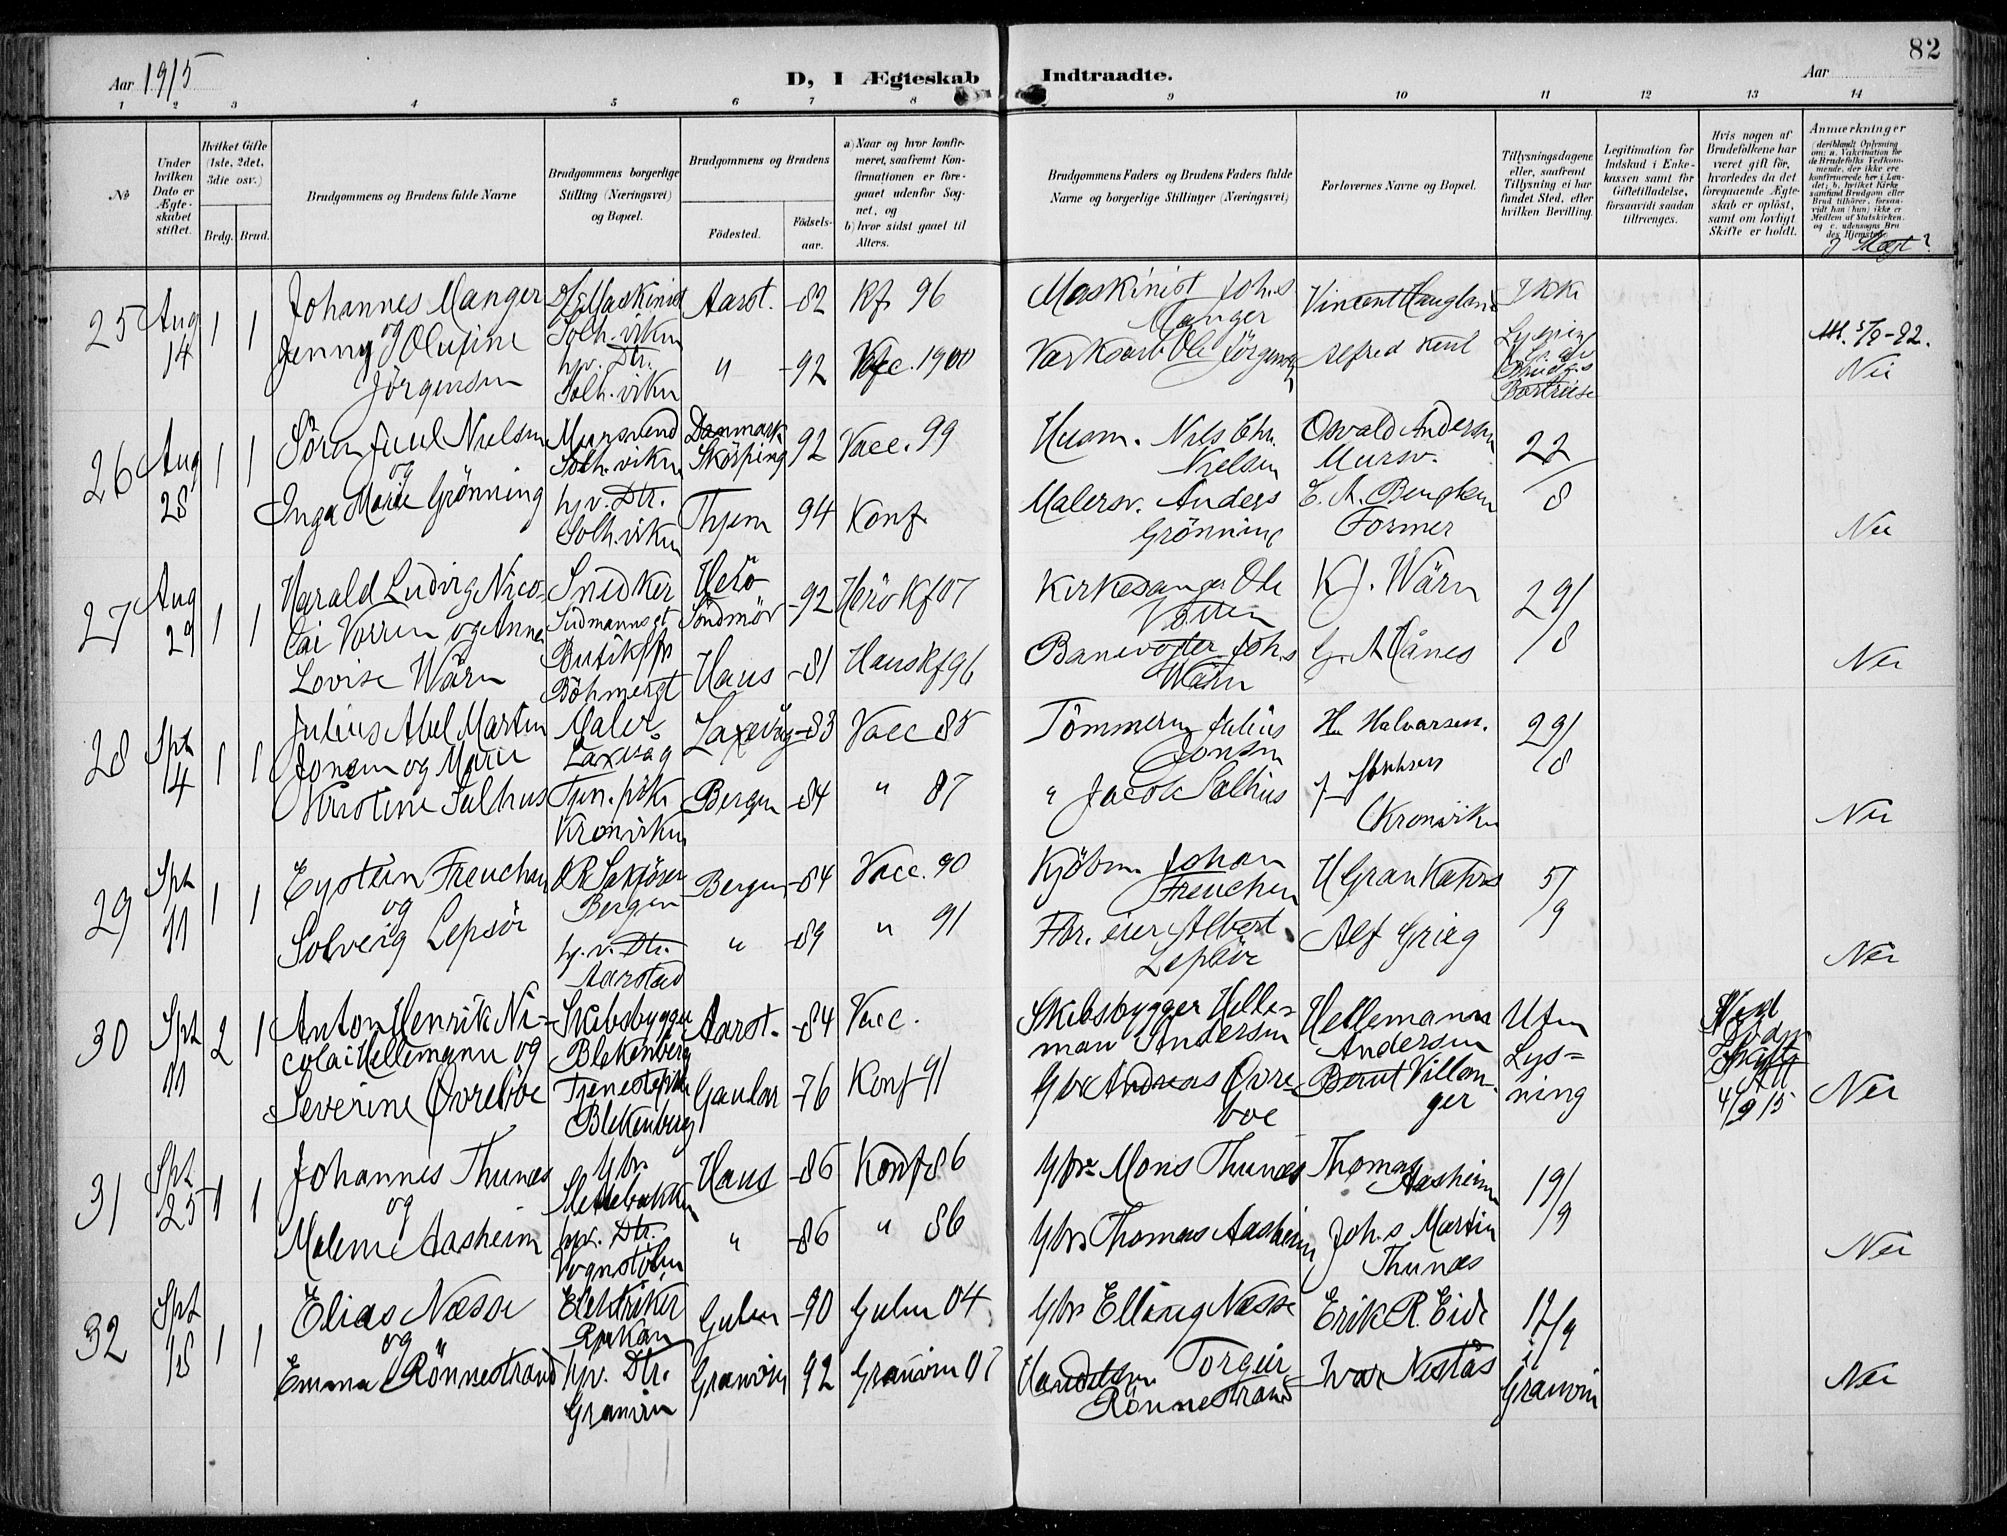 82
Aar 1915
D, I Ægteskab Indtraadte.
Aar
1 2 3 4 5 6 7 8 9 10 11 12 13 14
No
Under hvilken Dato er Ægteskabet stiftet.
Hvilket Gifte (1ste, 2det, 3die osv.)
Brdg. Brud.
Brudgommens og Brudens fulde Navne
Brudgommens borgerlige Stilling (Næringsvei) og Bopæl.
Brudgommens og Brudens
Födested.
Födselsaar.
a) Naar og hvor konfirmeret, saafremt Konfirmationen er foregaaet udenfor Sognet, og
b) hvor sidst gaaet til Alters.
Brudgommens Faders og Brudens Faders fulde Navne og borgerlige Stillinger (Næringsvei)
Forlovernes Navne og Bopæl.
Tillysningsdagene eller, saafremt Tillysning ei har fundet Sted, efter hvilken Bevilling.
Legitimation for Indskud i Enkekassen samt for Giftetilladelse, forsaavidt saadan tiltrænges.
Hvis nogen af Brudefolkene har været gift før, hvorledes da det foregaaende Ægteskab er oplöst, samt om lovligt Skifte er holdt.
Anmærkninger
25 Aug 14 1 1
Johannes Manger og
Jenny Olufine Jörgensen
Solh.viken
hjv. Dtr.
Solh.viken
Aarst. -82 Kf 96
" -92 Vacc. 1900
Maskinist Johs Manger
Ole Jörgensen
Vincent Haugland
Alfred
Ikke
Nei
26 Aug 28 1 1
Sören Juul Nielsen og
Inga Marie Grönning
Mursvend
Solh.viken
hjv. Dtr.
Solh.viken
Danmark Skörping 92 Vacc. 99
Hjem 94 Konf
Husm. Nils Chr. Nielsen
Malersv. Anders Grönning
Osvald Andersen
Mursv.
Former
22/8
Nei
27 Aug 29 1 1
Harald Ludvig Nicolai Vorren og Anna
Lovise Wärn
Snedker
Herö Söndmör -92 Herö Kf 07
Haus -81 Haus Kf 96
Kirkesanger Ole Vorren
Banevogter Johs Wärn
K. J. Wärn
29/8
Nei
28 Spt 4 1 1
Julius Abel Martin
Jonsen og Marie
Karoline Salhus
Maler
Laxevåg
Kronviken
Laxevåg -83 Vacc 85
Bergen -84 " 87
Tömmerm Julius Jonsen
" Jacob Salhus
H. Halvorsen.
Kronviken
29/8
Nei
29 Spt 11 1 1
Eystein Freuchen og
Solveig Lepsöe
Bergen
hj.v. Dtr.
Aarstad
Bergen -84 Vacc. 90
" -89 " 91
Kjöbm. Johan Freuchen
Albert Lepsöe
H Gran Kahrs
Alf Grieg
5/9
Nei
30 Spt 11 2 1
Anton Henrik Nicolai Hellemann og
Severine Övreböe
Skibsbygger
Blekenberg
Blekenberg
Aarst. -84 Vacc.
Gaular -76 Konf 91
Skibsbygger Helleman Andersen
Gbr Andreas Övreboe
Hellemann Andersen
Bernt Villanger
Uten Lysning
4/9 15
Nei
31 Spt 25 1 1
Johannes Thunæs og
Malene Aasheim
Gbr.
Slettebakken
hjv. Dtr.
Vognstölen
Haus -86 Konf 86
" -86 " 86
Gbr. Mons Thunæs
Gbr. Thomas Aasheim
Thomas Aasheim
Joh.s Martin Thunæs
19/9
Nei
32 Spt 18 1 1
Elias Næsse og
Emma Rönnestrand
Elektriker
Rjukan
hjv. Dtr.
Granvin
Gulen -90 Gulen 04
Granvin 92 Granvin 07
Gbr Elling Næsse
Torgeir Rönnestrand
Erik R. Eide
Ivar Nestås
12/9 i Granvin
Nei